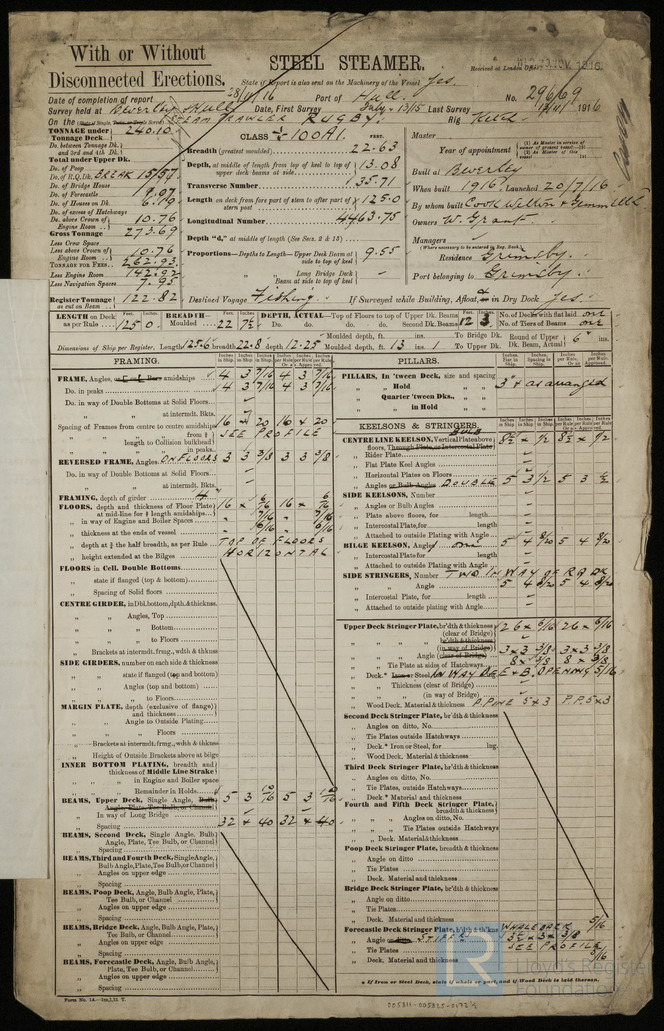 With or Without
Disconnected Erections.
STEEL STEAMER.
Received at London Office
State if Report is also sent on the Machinery of the Vessel Yes.
Date of completion of report 28/11/16 Port of Hull. No. 29669
Survey held at Beverley & Hull Date, First Survey July 13/15 Last Survey 1916
On the STEAM TRAWLER RUGBY. Rig Ketch
TONNAGE under Tonnage Deck 240.10
Do. between Tonnage Dk. and 3rd and 4th Dk.
Total under Upper Dk.
Do. of Poop
Do. of R.Q.Dk. BREAK 15/57
Do. of Bridge House
Do. of Forecastle 9.07
Do. of Houses on Dk. 6.19
Do. of excess of Hatchways
Do. above Crown of Engine Room 10.76
Gross Tonnage 273.69
Less Crew Space
Less above Crown of Engine Room 10.76
TONNAGE FOR FEES 262.93
Less Engine Room 142.92
Less Navigation Spaces 7.95
Register Tonnage as cut on Beam 122.82
CLASS 100A1.
FEET.
Breadth (greatest moulded) 22.63
Depth, at middle of length from top of keel to top of upper deck beams at side 13.08
Transverse Number 35.71
Length on deck from fore part of stem to after part of stern post 125.0
Longitudinal Number 4463.75
Depth "d," at middle of length (See Secs. 2 & 13)
Proportions—Depths to Length—Upper Deck Beam at side to top of keel 9.55
Long Bridge Deck Beam at side to top of keel
Destined Voyage Fishing.
Master
Year of appointment
(1) As Master in service of owner of present vessel:
(2) As Master of this vessel:
Built at Beverley
When built 1916. Launched 20/7/16
By whom built Cook Welton & Gemmell Ltd
Owners W. Grant.
Managers
(Where necessary to be entered in Reg. Book)
Residence Grimsby.
Port belonging to Grimsby.
If Surveyed while Building, Afloat, or in Dry Dock Yes.
LENGTH on Deck as per Rule 125 0
BREADTH Moulded 22 7½
DEPTH, ACTUAL—Top of Floors to top of Upper Dk. Beams 12 3
Do. do. do. Second Dk. Beams
No. of Decks with flat laid one
No. of Tiers of Beams one
Dimensions of Ship per Register, Length 125.6 breadth 22.8 depth 12.25
Moulded depth, ft. ins. To Bridge Dk.
Moulded depth, ft. 13 ins. 1 To Upper Dk.
Round of Upper Dk. Beam, Actual 6 ins.
FRAMING.
FRAME, Angles, amidships 4 3 7/16 4 3 7/16
Do. in peaks 4 3 7/16 4 3 7/16
Do. in way of Double Bottoms at Solid Floors
at intermdt. Bkts.
Spacing of Frames from centre to centre amidships 16 & 20 16 & 20
length to Collision bulkhead SEE PROFILE
in peaks
REVERSED FRAME, Angles ON FLOORS 3 3 3/8 3 3 3/8
Do. in way of Double Bottoms at Solid Floors
at intermdt. Bkts.
FRAMING, depth of girder 4
FLOORS, depth and thickness of Floor Plate at mid-line for ½ length amidships 16 × 16 ×
in way of Engine and Boiler Spaces
thickness at the ends of vessel
depth at ¼ the half breadth, as per Rule TOP OF FLOORS
height extended at the Bilges HORIZONTAL
FLOORS in Cell. Double Bottoms.
state if flanged (top & bottom)
Spacing of Solid floors
CENTRE GIRDER, in Dbl. bottom, dpth. & thcknss.
Angles, Top
Bottom
to Floors
Brackets at intermdt. frmg., wdth & thknss
SIDE GIRDERS, number on each side & thickness
state if flanged (top and bottom)
Angles (top and bottom)
to Floors
MARGIN PLATE, depth (exclusive of flange) and thickness
Angle to Outside Plating
Floors
Brackets at intermdt. frmg., wdth & thknss
Height of Outside Brackets above at bilge
INNER BOTTOM PLATING, breadth and thickness of Middle Line Strake
in Engine and Boiler space
Remainder in Holds
BEAMS, Upper Deck, Single Angle, 5 3 5 3
In way of Long Bridge
Spacing 32 & 40 32 & 40
BEAMS, Second Deck, Single Angle, Bulb Angle, Plate, Tee Bulb, or Channel
Spacing
BEAMS, Third and Fourth Deck, Single Angle, Bulb Angle, Plate, Tee Bulb, or Channel
Angles on upper edge
Spacing
BEAMS, Poop Deck, Angle, Bulb Angle, Plate, Tee Bulb, or Channel
Angles on upper edge
Spacing
BEAMS, Bridge Deck, Angle, Bulb Angle, Plate, Tee Bulb, or Channel
Angles on upper edge
Spacing
BEAMS, Forecastle Deck, Angle, Bulb Angle, Plate, Tee Bulb, or Channel
Angles on upper edge
Spacing
Form No. 1A.
PILLARS.
PILLARS, In 'tween Deck, size and spacing
Hold 3 & as arranged
Quarter 'tween Dks.,
in Hold
KEELSONS & STRINGERS.
CENTRE LINE KEELSON, Vertical Plate above floors, 8½ × ½ 8½ × ½
Rider Plate
Flat Plate Keel Angles
Horizontal Plates on Floors
Angles DOUBLE 5 3 ½ 5 3 ½
SIDE KEELSONS, Number
Angles or Bulb Angles
Plate above floors, for length
Intercostal Plate, for length
Attached to outside Plating with Angle
BILGE KEELSON, Angles one 5 4 8/20 5 4 8/20
Intercostal Plate for length
Attached to outside Plating with Angle
SIDE STRINGERS, Number TWO IN WAY OF RQ DK
Angle 5 4 8/20 5 4 8/20
Intercostal Plate, for length
Attached to outside plating with Angle
Upper Deck Stringer Plate, br'dth & thickness (clear of Bridge) 26 × 6/16 26 × 6/16
br'dth & thickness (in way of Bridge)
Angle (clear of Bridge) 3 × 3 3/8 3 × 3 3/8
Tie Plate at sides of Hatchways 8 × 3/8 8 × 3/8
Deck. Steel, IN WAY OF E & B OPENING 5/16
Thickness (clear of Bridge)
(in way of Bridge)
Wood Deck. Material & thickness P.PINE 5×3 P.P. 5×3
Second Deck Stringer Plate, br'dth & thickness
Angles on ditto, No.
Tie Plates outside Hatchways
Deck.* Iron or Steel, for lng.
Wood Deck. Material & thickness
Third Deck Stringer Plate, br'dth & thickness
Angles on ditto, No.
Tie Plates, outside Hatchways
Deck.* Material and thickness
Fourth and Fifth Deck Stringer Plate, breadth & thickness
Angles on ditto, No.
Tie Plates outside Hatchways
Deck. Material & thickness
Poop Deck Stringer Plate, breadth & thickness
Angle on ditto
Tie Plates
Deck. Material and thickness
Bridge Deck Stringer Plate, br'dth & thickness
Angle on ditto
Tie Plates
Deck. Material and thickness
Forecastle Deck Stringer Plate, b'dth & th'kns WHALEBACK 5/16
Angle STIFFRS 3½ × 3 × 3/8
Tie Plates SEE PROFILE
Deck. Material and thickness 5/16
* If Iron or Steel Deck, state if whole or part, and if Wood Deck is laid thereon.
Lloyd's Register
Foundation
005311-005325-0172 1/4